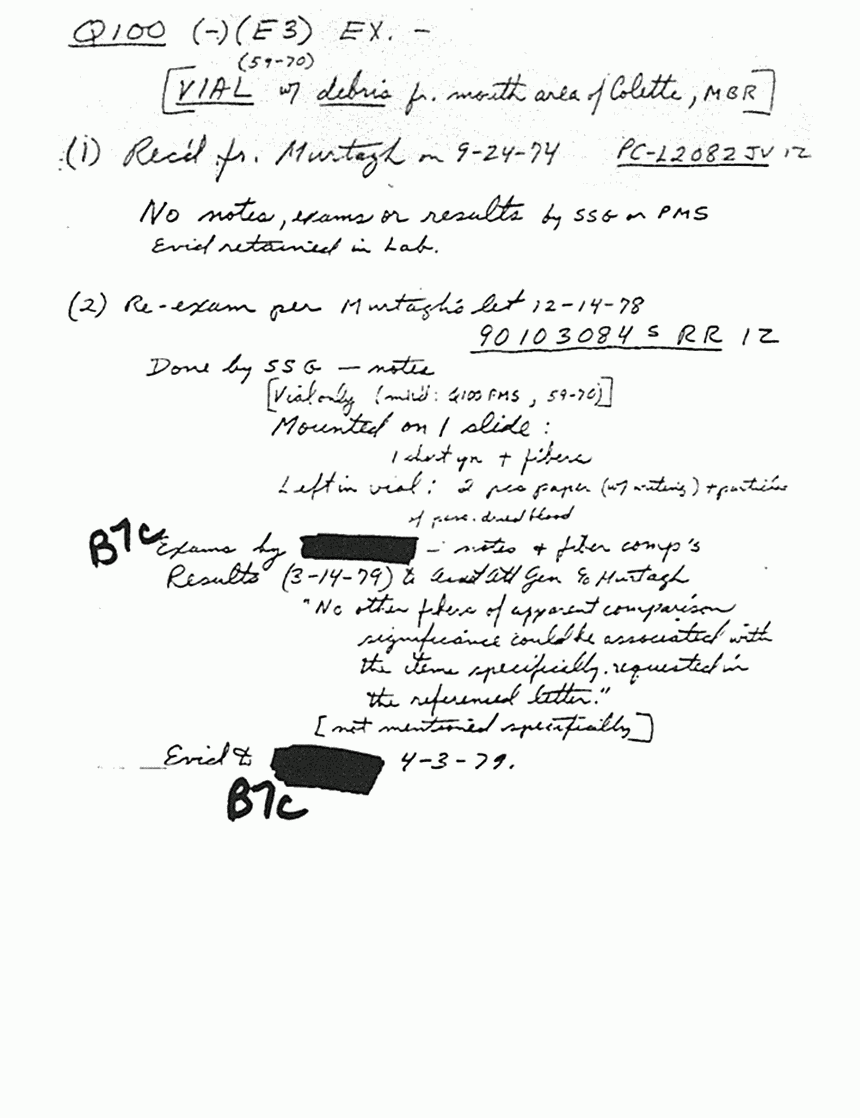 Q100 (-)(E3) EX. -
(59-70)
[VIAL w/ debris fr. mouth area of Colette, MBR]
(1) Rec'd fr. Murtagh on 9-24-74 PC-L2082 JV 1Z
No notes, exams or results by SSG or PMS
Evid retained in Lab.
(2) Re-exam per Murtagh's let 12-14-78
90103084 S RR 1Z
Done by SSG — notes
[Vial only (mk'd: Q100 PMS, 59-70)]
Mounted on 1 slide:
1 short yn + fibers
Left in vial: 2 pcs paper (w/ writing) + particles
of poss. dried blood
B7C
Exams by - notes + fiber comp's
Results (3-14-79) to Asst Att Gen % Murtagh
"No other fibers of apparent comparison
significance could be associated with
the items specifically requested in
the referenced letter."
[not mentioned specifically]
Evid to 4-3-79.
B7C